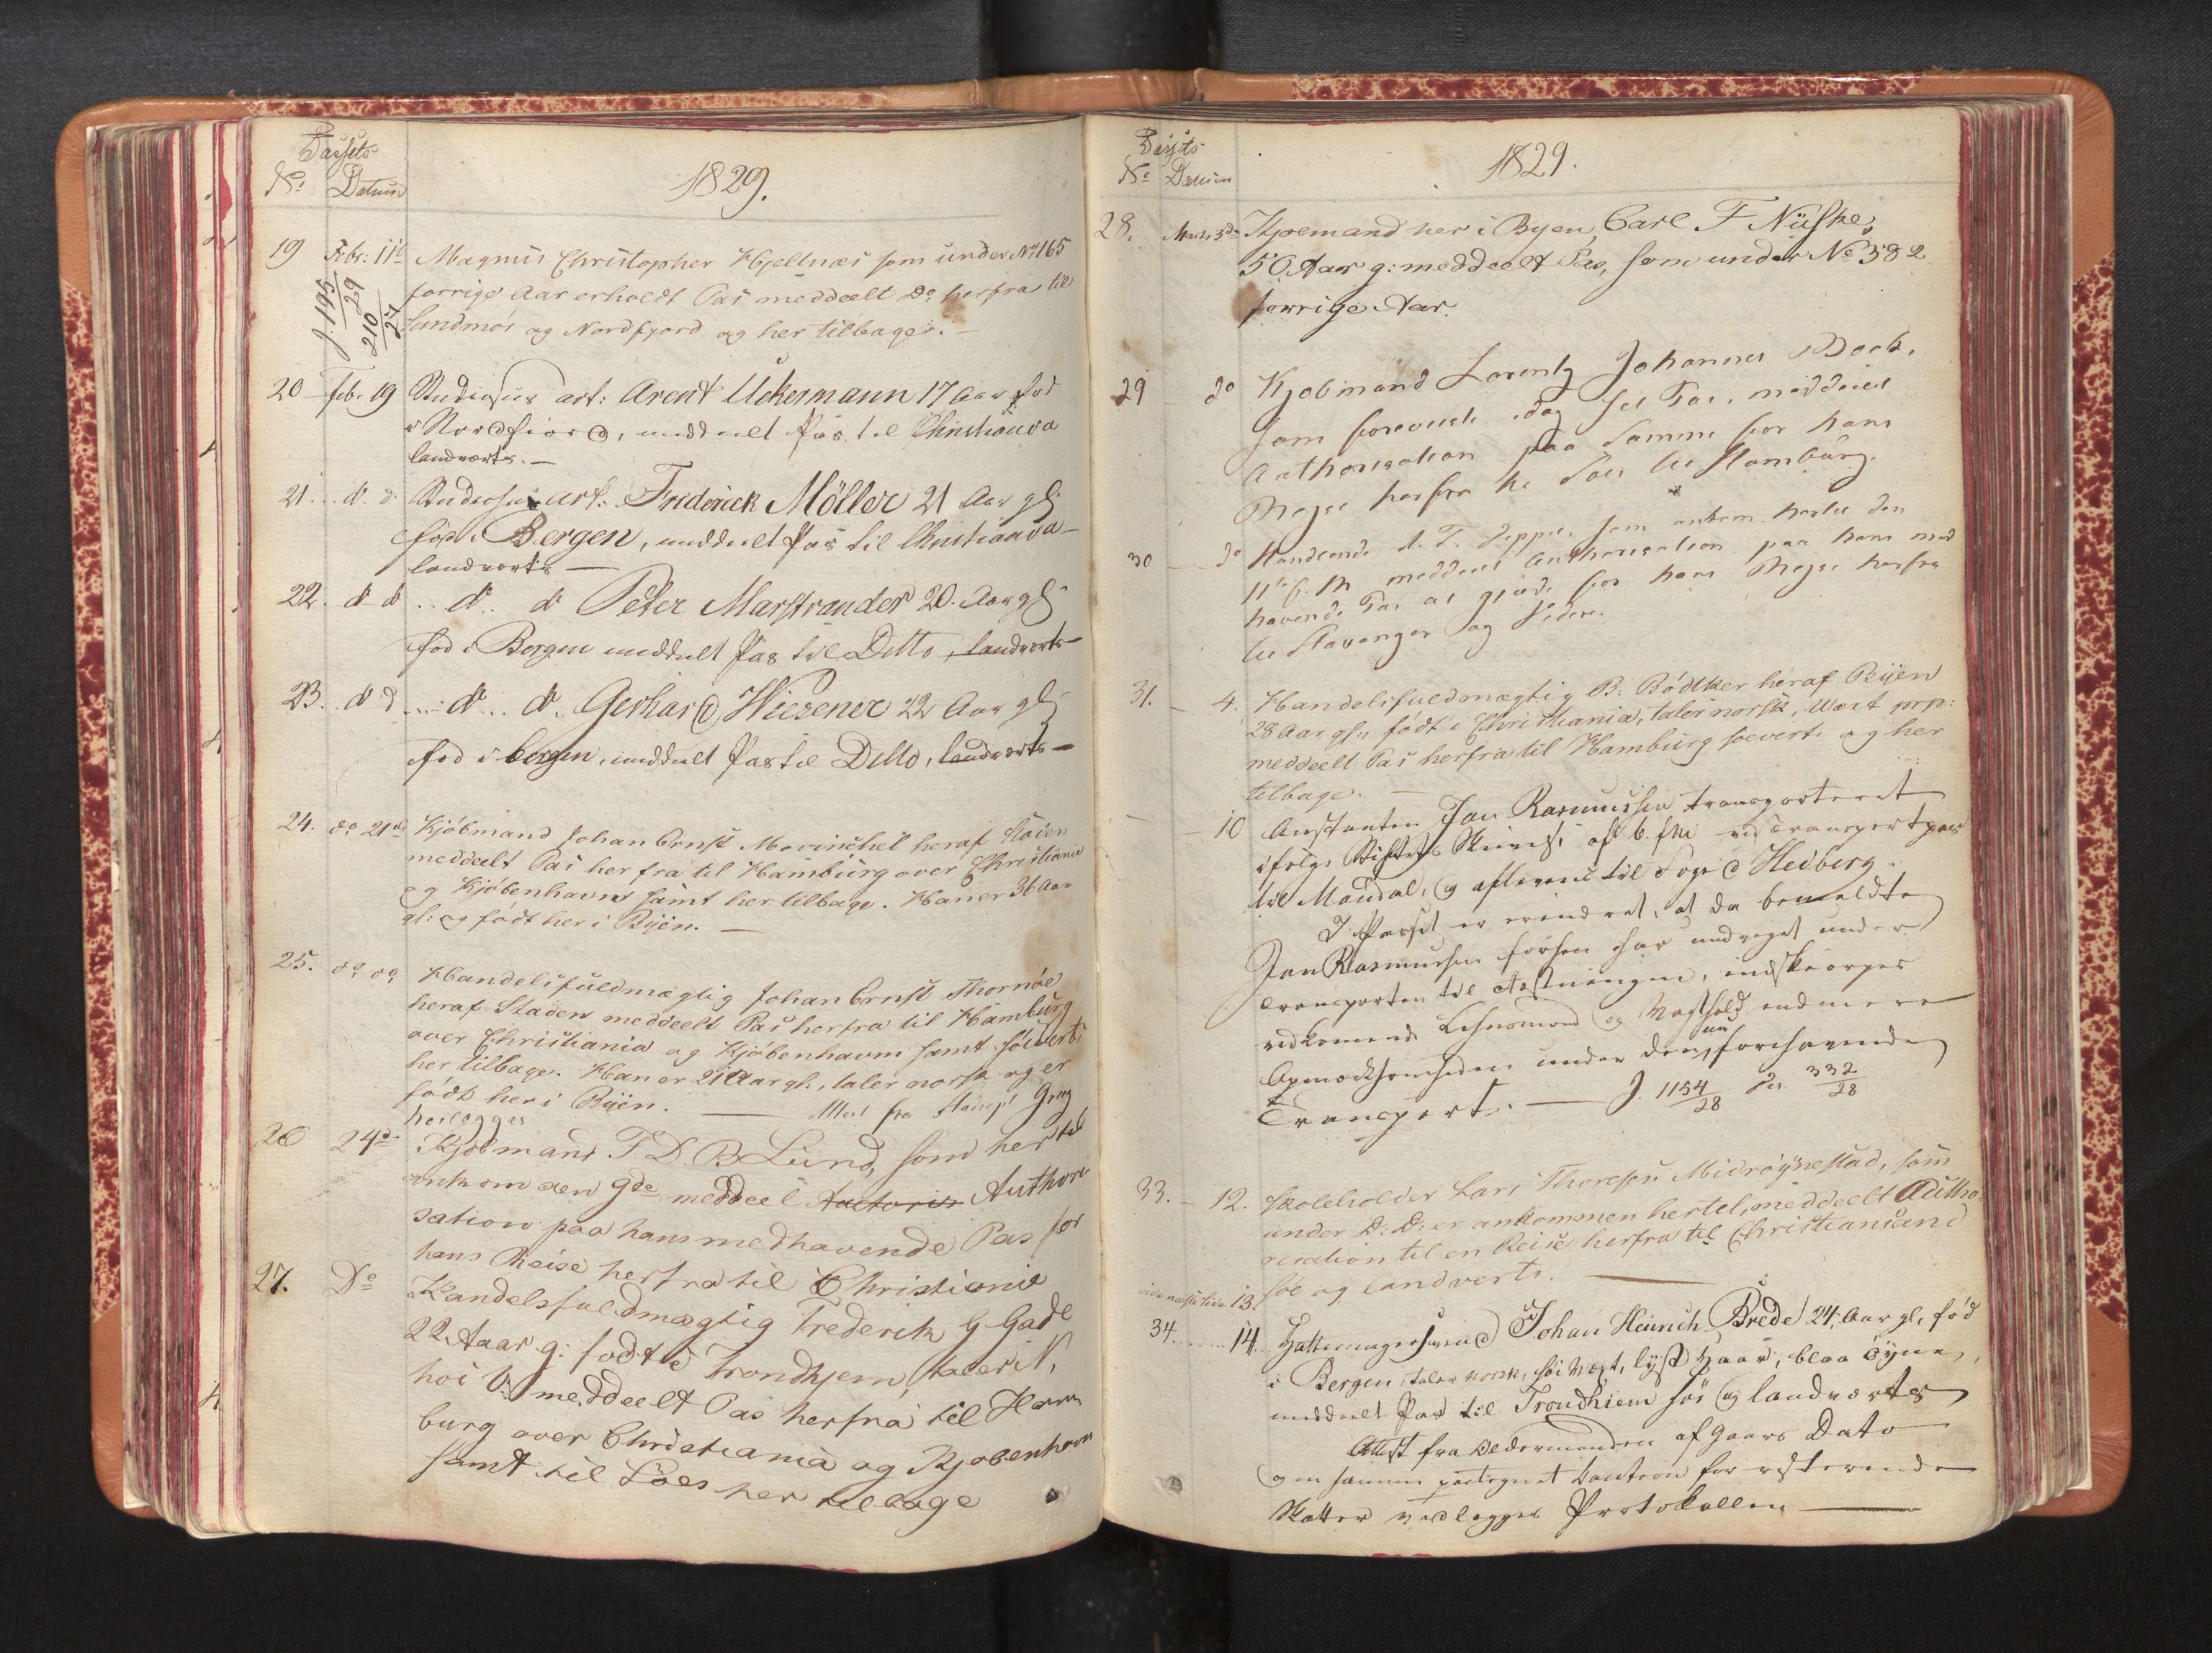 Passets
No. Datum
1829.
19 Febr: 11te Magnus Christopher Hjeltnæs som under No 165
forrige Aar erholdt Pas meddeelt Do herfra til
Sundmör og Nordfjord og her tilbage. —
J. 195/29 210/27
20 – Feb. 19 Studiosus art: Arent Uckermann 17 Aar fød
i Nordfiord, meddeelt Pas til Christiania
landværts. —
21. d. d. Studiosus art. Friderick Möller 21 Aar gl.
fød i Bergen, meddeelt Pas til Christiania –
landværts —
22. d. d. .. d. d. Peter Marstrander 20. Aar gl.
fød i Bergen meddeelt Pas til Ditto, landværts –
23. d. d. ... d. .. d. Gerhard Wiesener 22 Aar gl.
fød i bergen, meddeelt Pas til Ditto, landværts –
24. do 21de Kjöbmand Johan Ernst heraf Staden
meddeelt Pas herfra til Hamburg over Christiania
og Kjöbenhavn samt her tilbage. Han er 36 Aar
gl: og födt her i Byen. —
25. do do Handelsfuldmægtig Johan Ernst Thornöe
heraf Staden meddeelt Pas herfra til Hamburg
over Christiania og Kjöbenhavn samt söeverts
her tilbage. Han er 21 Aar gl., taler norsk og er
födt her i Byen. — Attest fra
herlegges
26 24de Kjöbmand T. D. B Lund, som her til
ankom den 9de meddeel Autoris Authori-
sation paa hans medhavende Pas for
hans Reise herfra til Christiania
27. Do Handelsfuldmægtig Frederik G Gade
22 Aar g: födt i Trondhjem, taler N,
höi V: meddeelt Pas herfra til Ham
burg over Christiania og Kjøbenhavn
samt til Söes her tilbage
Passets
No Datum
1829.
28. Marts 3de Kjøbmand her i Byen, Carl F
50 Aar g: meddeelt Pas, som under No 382
forrige Aar.
29 do Kjöbmand Lorentz Johannes
som foreviste idag sit Pas, meddeelt
Authorisation paa samme for hans
Reyse herfra til Söes til Hamburg.
30 – do Handlende som ankom hertil den
11te meddeelt Authorisation paa hans med
havende Pas at gjælde for hans Reyse herfra
til Stavanger og videre.
31. – 4. Handelsfuldmægtig B: Bödtker heraf Byen
28 Aar gl:, födt i Christiania, taler norsk, Væxt prp:
meddeelt Pas herfra til Hamburg söeverts og her
tilbage. —
– 10 Arrestanten Jan Rasmussen transporteret
ifölge Stiftets Skrivelse af 6. ved Transportpas
til Mandal, og afleveres til Foged Heiberg.
I Passet er erindret, at da bemeldte
Jan Rasmussen forhen har undveget under
Transporten til Fæstningen, indskjærpes
vedkomende Lehnsmænd og Vagthold endmere
Opmærksomheden under den nu forehavende
Transport. — J. 1154/28 332/28
33. – 12. Skoleholder Lars Thoresen Midröÿnestad, som
under D: D: er ankommen hertil, meddeelt Autho-
risation til en Reise herfra til Christiansand
söe og landverts. —
vide næste Side 13.
34. ..... 14. Hattemagersvend Johan Heinrich Brede 24. Aar gl. fød
i Bergen, taler norsk, höi Vext, lyst Haar, blaa öyne,
meddeelt Pas til Trondhiem söe og landværts
Attest fra Oldermanden af Gaars Dato
og en samme paategnet Caution for resterende
Skatter vedlegges Protokollen —